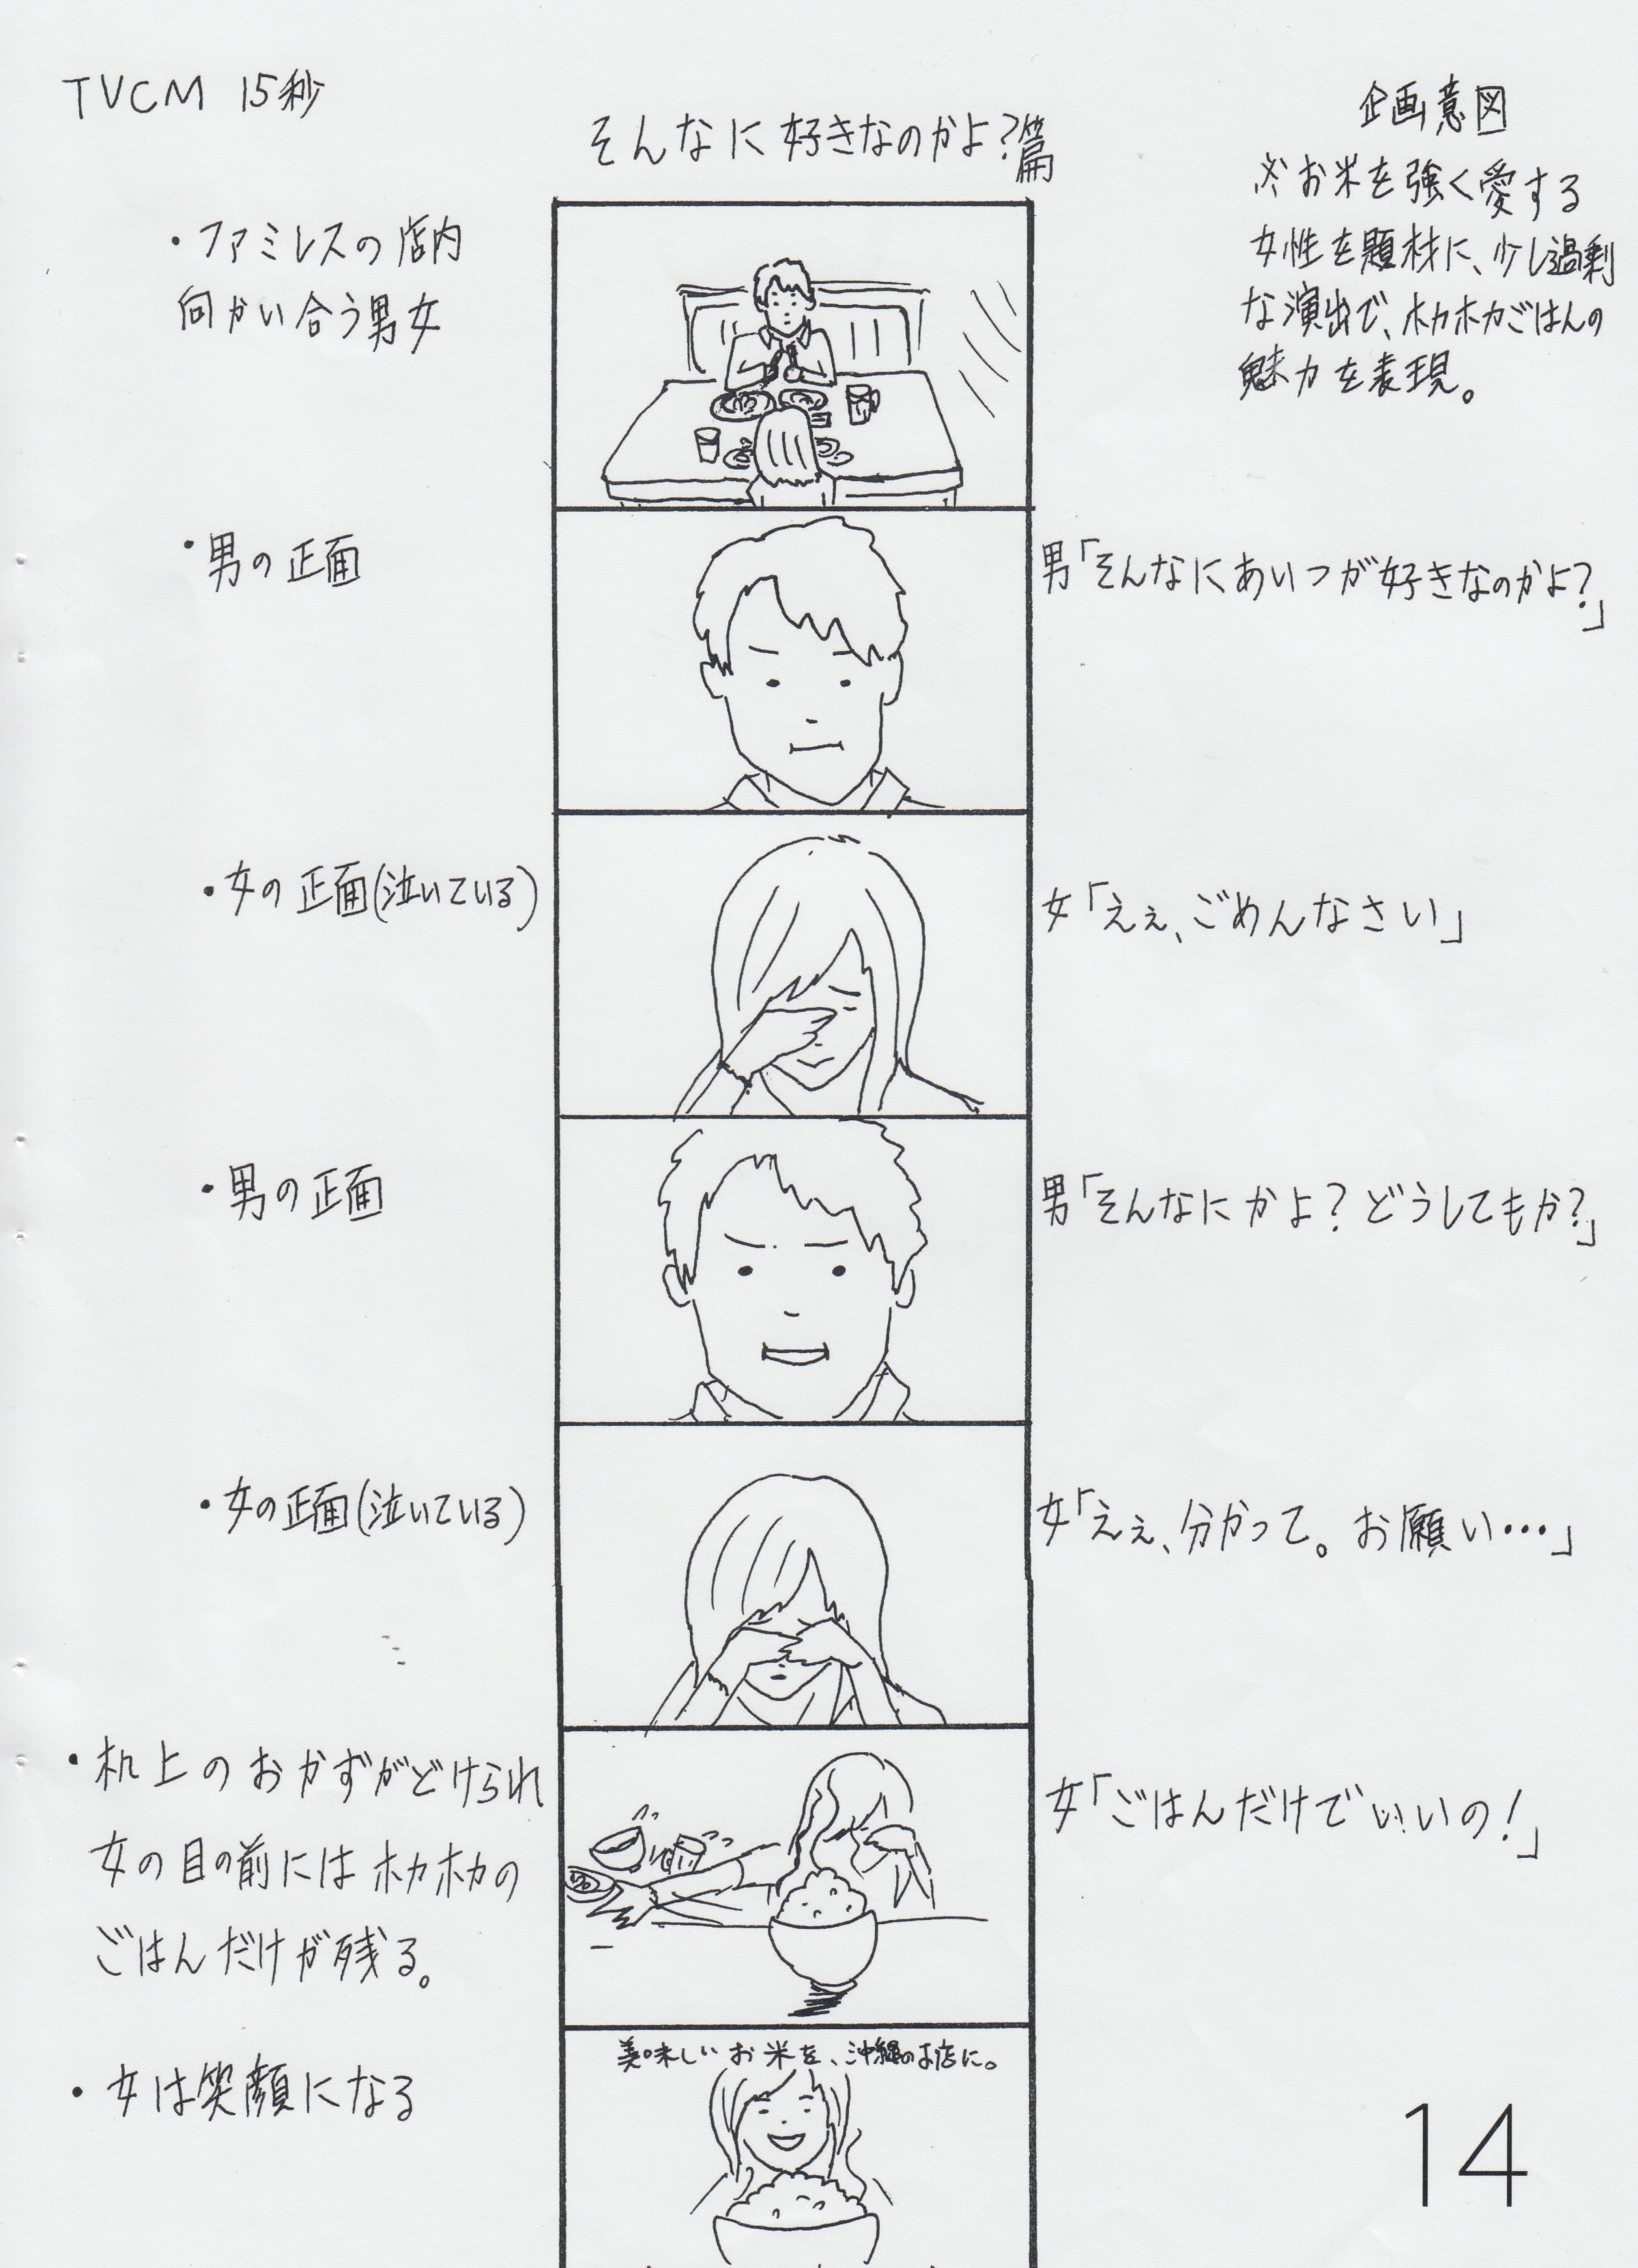 TVCM 15秒
そんなに好きなのかよ?篇
企画意図
お米を強く愛する
女性を題材に、少し過剰
な演出で、ホカホカごはんの
魅力を表現。
・ファミレスの店内
向かい合う男女
・男の正面
男「そんなにあいつが好きなのかよ?」
・女の正面(泣いている)
女「えぇ、ごめんなさい」
・男の正面
男「そんなにかよ?どうしてもか?」
・女の正面(泣いている)
女「えぇ、分かって。お願い…」
・机上のおかずがどけられ
女の目の前にはホカホカの
ごはんだけが残る。
女「ごはんだけでいいの!」
美味しいお米を、沖縄のお店に。
・女は笑顔になる
14